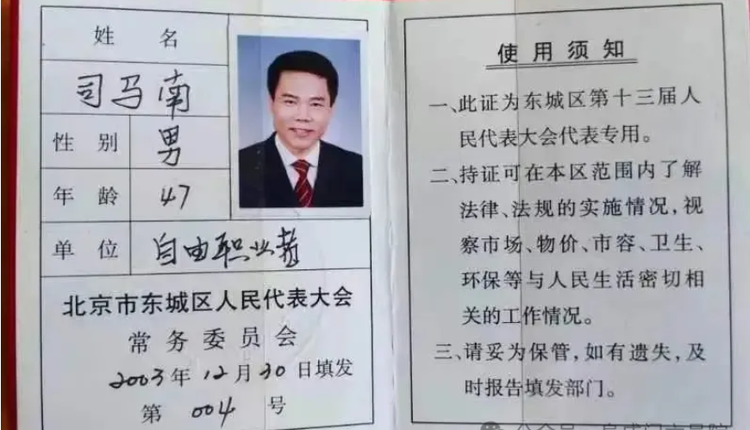 姓名
司马南
性别
男
年龄
47
单位
自由职业者
北京市东城区人民代表大会
常务委员会
2003年12月30日填发
第 004 号
使用须知
一、此证为东城区第十三届人
民代表大会代表专用。
二、持证可在本区范围内了解
法律、法规的实施情况,视
察市场、物价、市容、卫生、
环保等与人民生活密切相
关的工作情况。
三、请妥为保管,如有遗失,及
时报告填发部门。